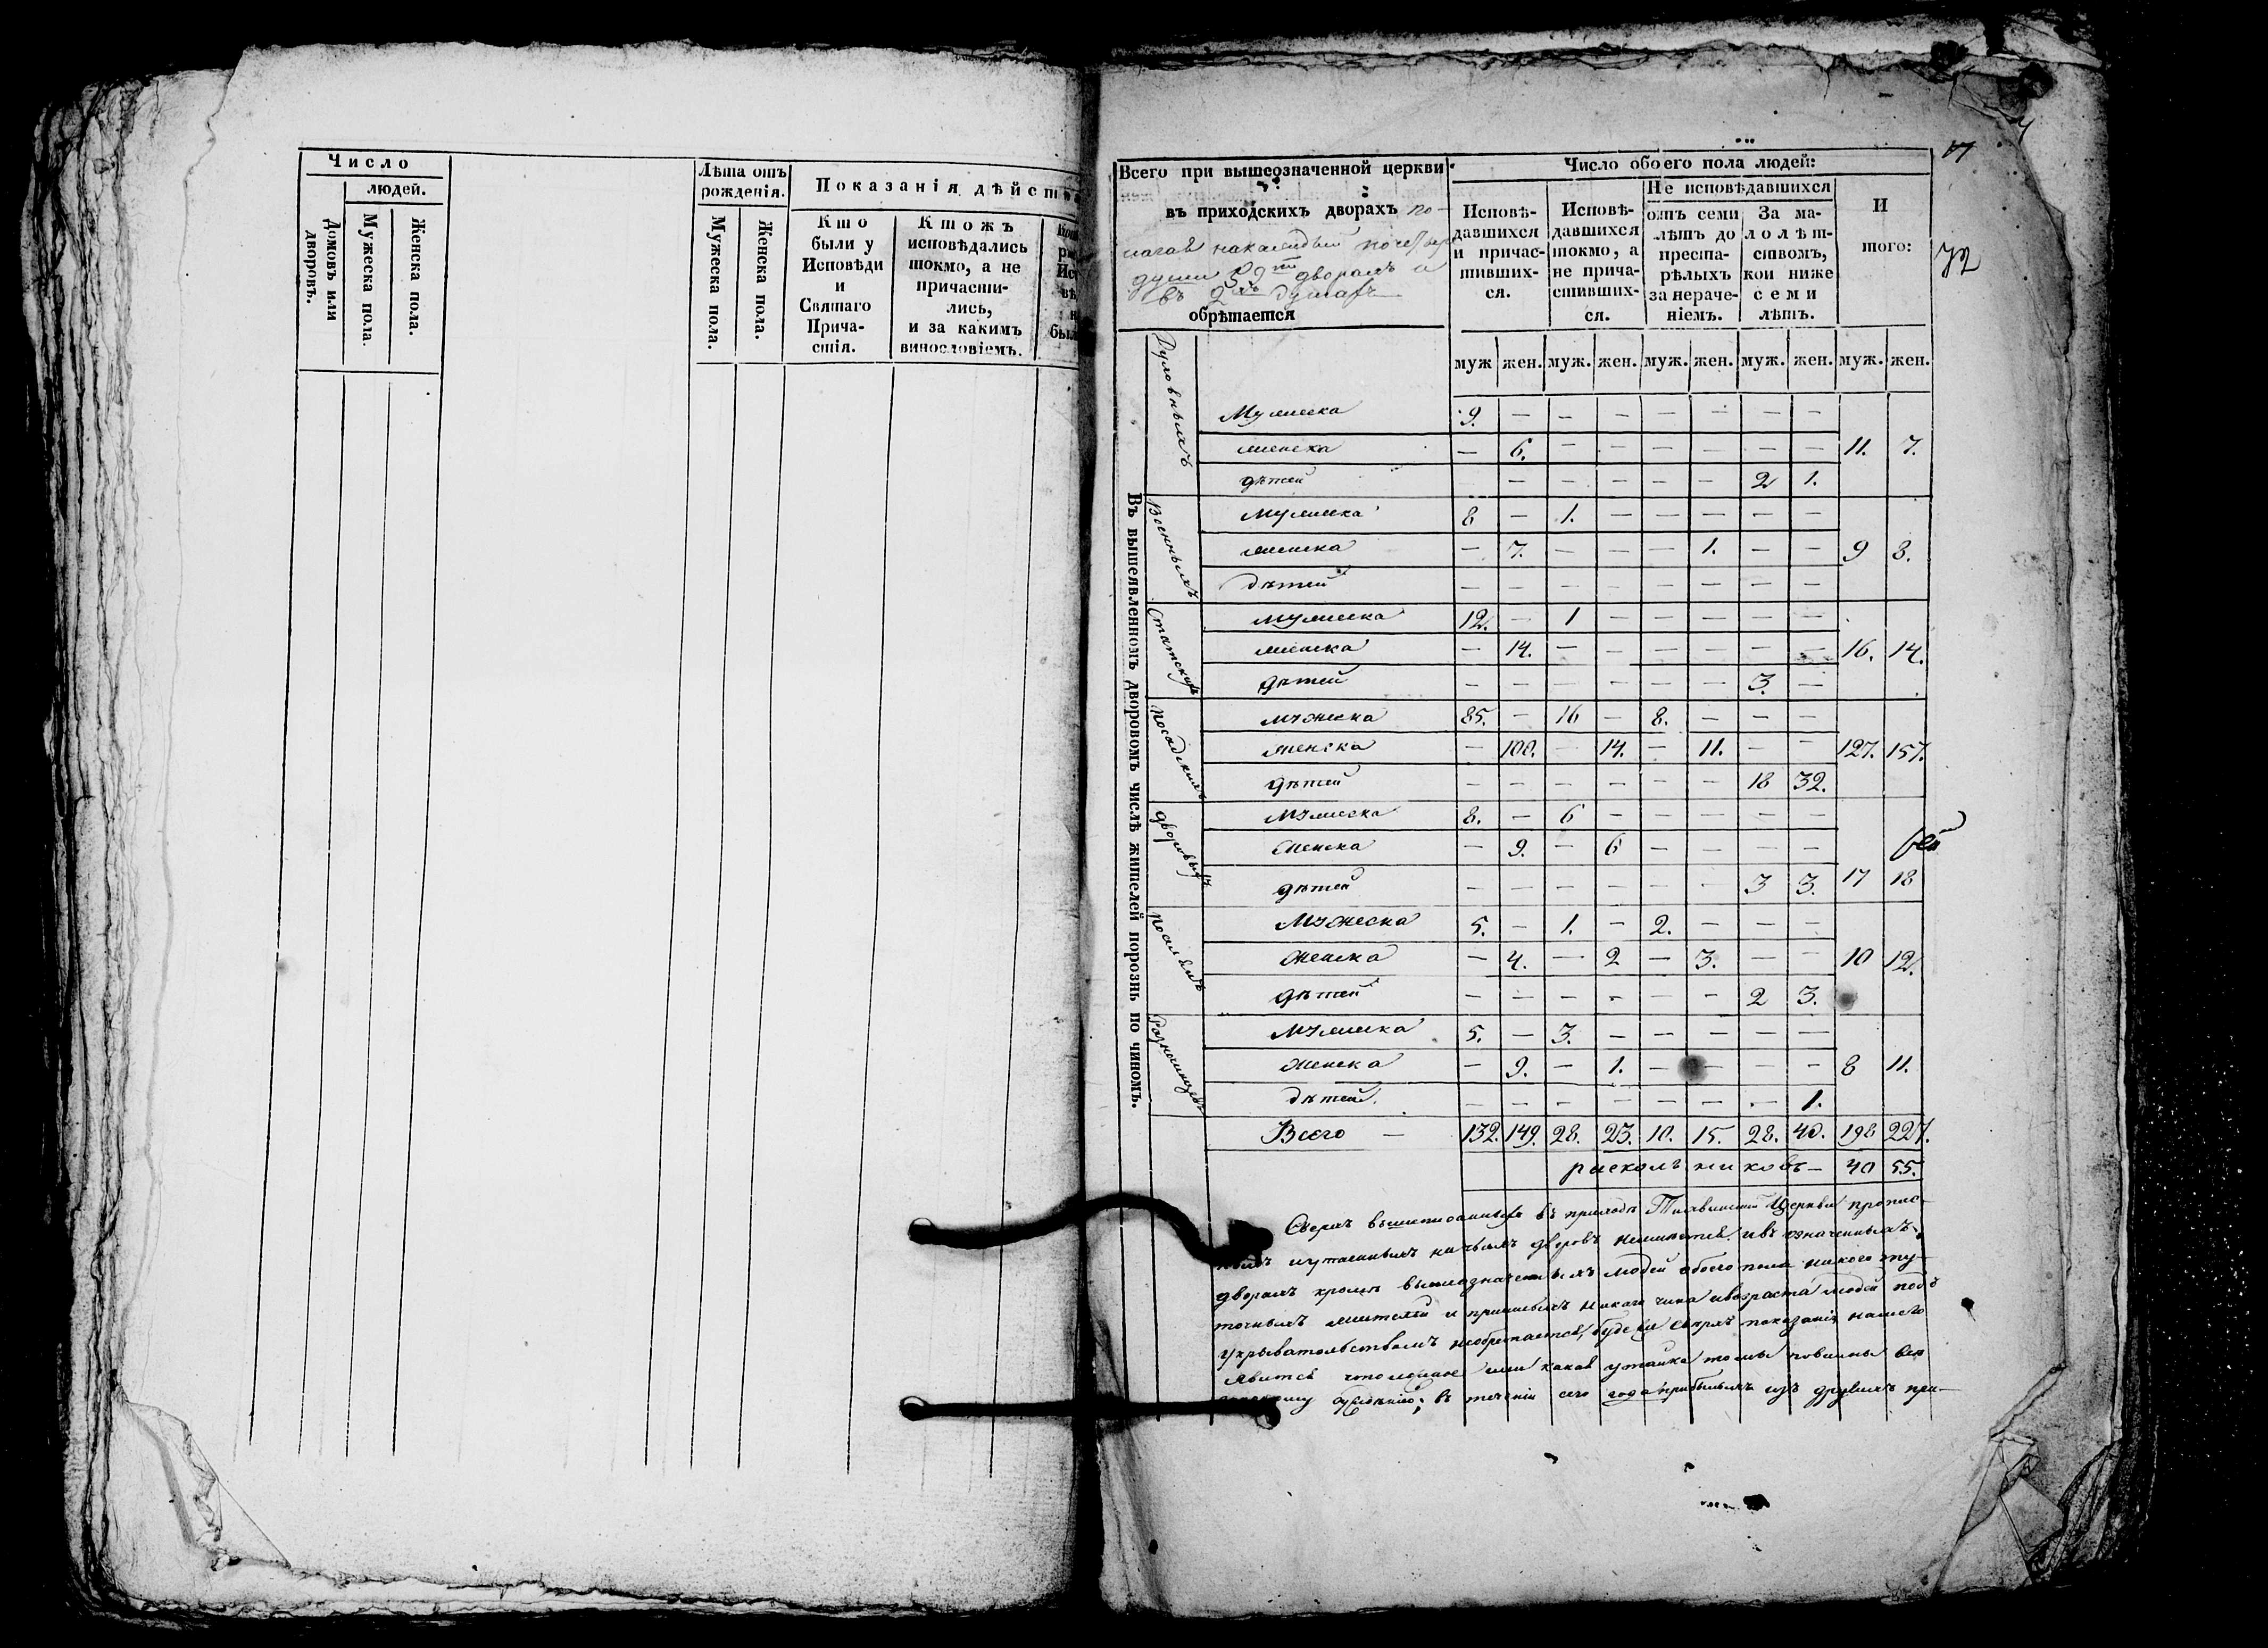 Число
людей.
Домовъ или дворовъ.
Мужеска пола.
Женска пола.
Лѣта отъ рожденія.
Мужеска пола.
Женска пола.
Показанія дѣйст
Кто были у Исповѣди и Святаго Причастія.
Ктожъ исповѣдались токмо, а не причастились, и за какимъ винословіемъ.
Всего при вышеозначенной церкви
въ приходскихъ дворахъ по-
лагая на каждый по четыре
души
дворахъ и
въ 2хъ душахъ
обрѣтается
Число обоего пола людей:
Исповѣ-
давшихся
и причас-
тивших-
ся.
Исповѣ-
давшихся
токмо, а
не прича-
стивших-
ся.
Не исповѣдавшихся
отъ семи
лѣтъ до
преста-
рѣлыхъ
за нераче-
ніемъ.
За ма-
лолѣт-
ствомъ,
кои ниже
семи
лѣтъ.
И
того:
72
муж жен. муж. жен. муж. жен. муж. жен. муж. жен.
Въ вышеявленномъ дворовомъ числѣ жителей порознь по чиномъ.
Духовныхъ
Мужеска 9. — — — — — — —
женска — 6. — — — — — — 11. 7.
дѣтей — — — — — 2 1.
Военныхъ
Мужеска 8 — 1. — — — — —
женска — 7. — — — 1. — — 9 8.
дѣтей — — — — — — — —
Статскихъ
мужеска 12. — 1 — — — — —
женска — 14. — — — — — — 16. 14.
дѣтей — — — — — — 3. —
посадскихъ
мужеска 85. — 16 — 8. — — —
женска — 100. — 14. — 11. — — 127. 157.
дѣтей — — — — — — 18 32.
дворовыхъ
мужеска 8. — 6 — — — — —
женска — 9. — 6 — — — —
дѣтей — — — — — — 3 3. 17 18
поселянъ
Мужеска 5. — 1. — 2. — — —
женска — 4. — 2 — 3. — — 10 12.
дѣтей — — — — — — 2 3.
Разночинцевъ
мужеска 5. — 3. — — — — —
женска — 9. — 1. — — — — 8 11.
дѣтей. — — — — — — — 1.
Всего — 132. 149. 28. 23. 10. 15. 28. 40. 198 227.
раскольниковъ — 40 55.
Сверхъ вышеписанныхъ въ приходѣ Тихвинской Церкви пропис-
ныхъ и утаенныхъ ничьихъ дворовъ неимѣется, и въ означенныхъ
дворахъ кромѣ вышеозначенныхъ людей обоего пола никого ту-
точныхъ жителей и пришлыхъ никаго чина и возраста людей подъ
укрывательствомъ необрѣтается, буде же сверхъ показанія нашего
явится что ложное или какая утайка то мы повинны
сужденію; въ теченіи сего года прибылыхъ изъ другихъ при-